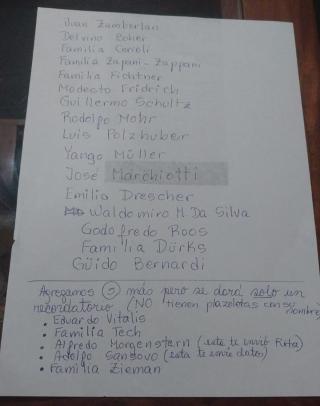 Juan Zamberlan
Delvino Boher
Familia Ceroli
Familia Zapani - Zappani
Familia Fichtner
Modesto Fridrich
Guillermo Schultz
Rodolfo Mohr
Luis Polzhuber
Yango Müller
José Marchiotti
Emilia Drescher
Waldomiro M. Da Silva
Godofredo Roos
Familia Dörks
Güido Bernardi
Agregamos 5 más pero se dará solo un
recordatorio (NO tienen plazoletas con su nombre)
• Eduardo Vitalis
• Familia Tech
• Alfredo Morgenstern (este te envió Rota)
• Adolfo Sandovo (esta te envie datos)
• Familia Zieman